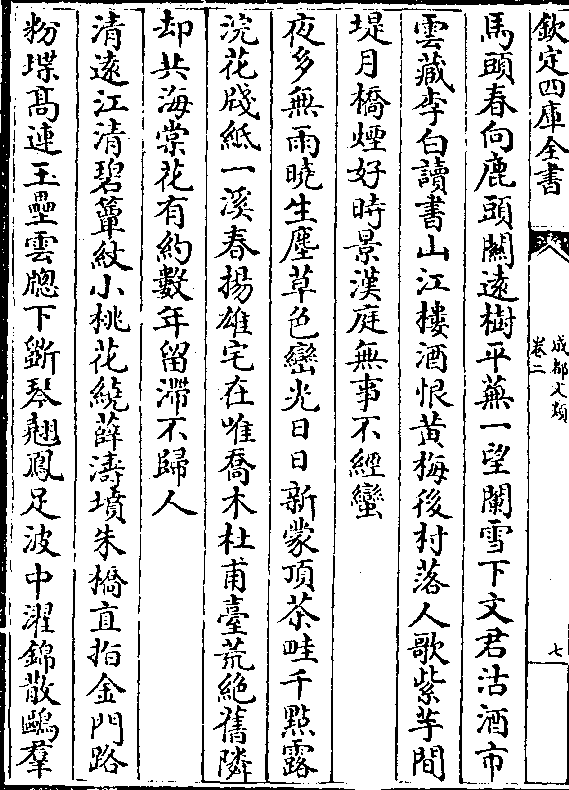 欽定四庫全書
成都文類
卷二
七
馬頭春向鹿頭關逺樹平蕪一望闌雪下文君沽酒市
雲藏李白讀書山江樓酒恨黄梅後村落人歌紫芋間
堤月橋煙好時景漢庭無事不經蠻
夜多無雨曉生塵草色巒光日日新蒙頂茶畦千點露
浣花牋紙一溪春揚雄宅在唯喬木杜甫臺荒絶舊隣
却共海棠花有約數年留滯不歸人
清逺江清碧簟紋小桃花繞薛濤墳朱橋直指金門路
粉堞髙連玉壘雲牕下斵琴翹鳳足波中濯錦散鷗羣